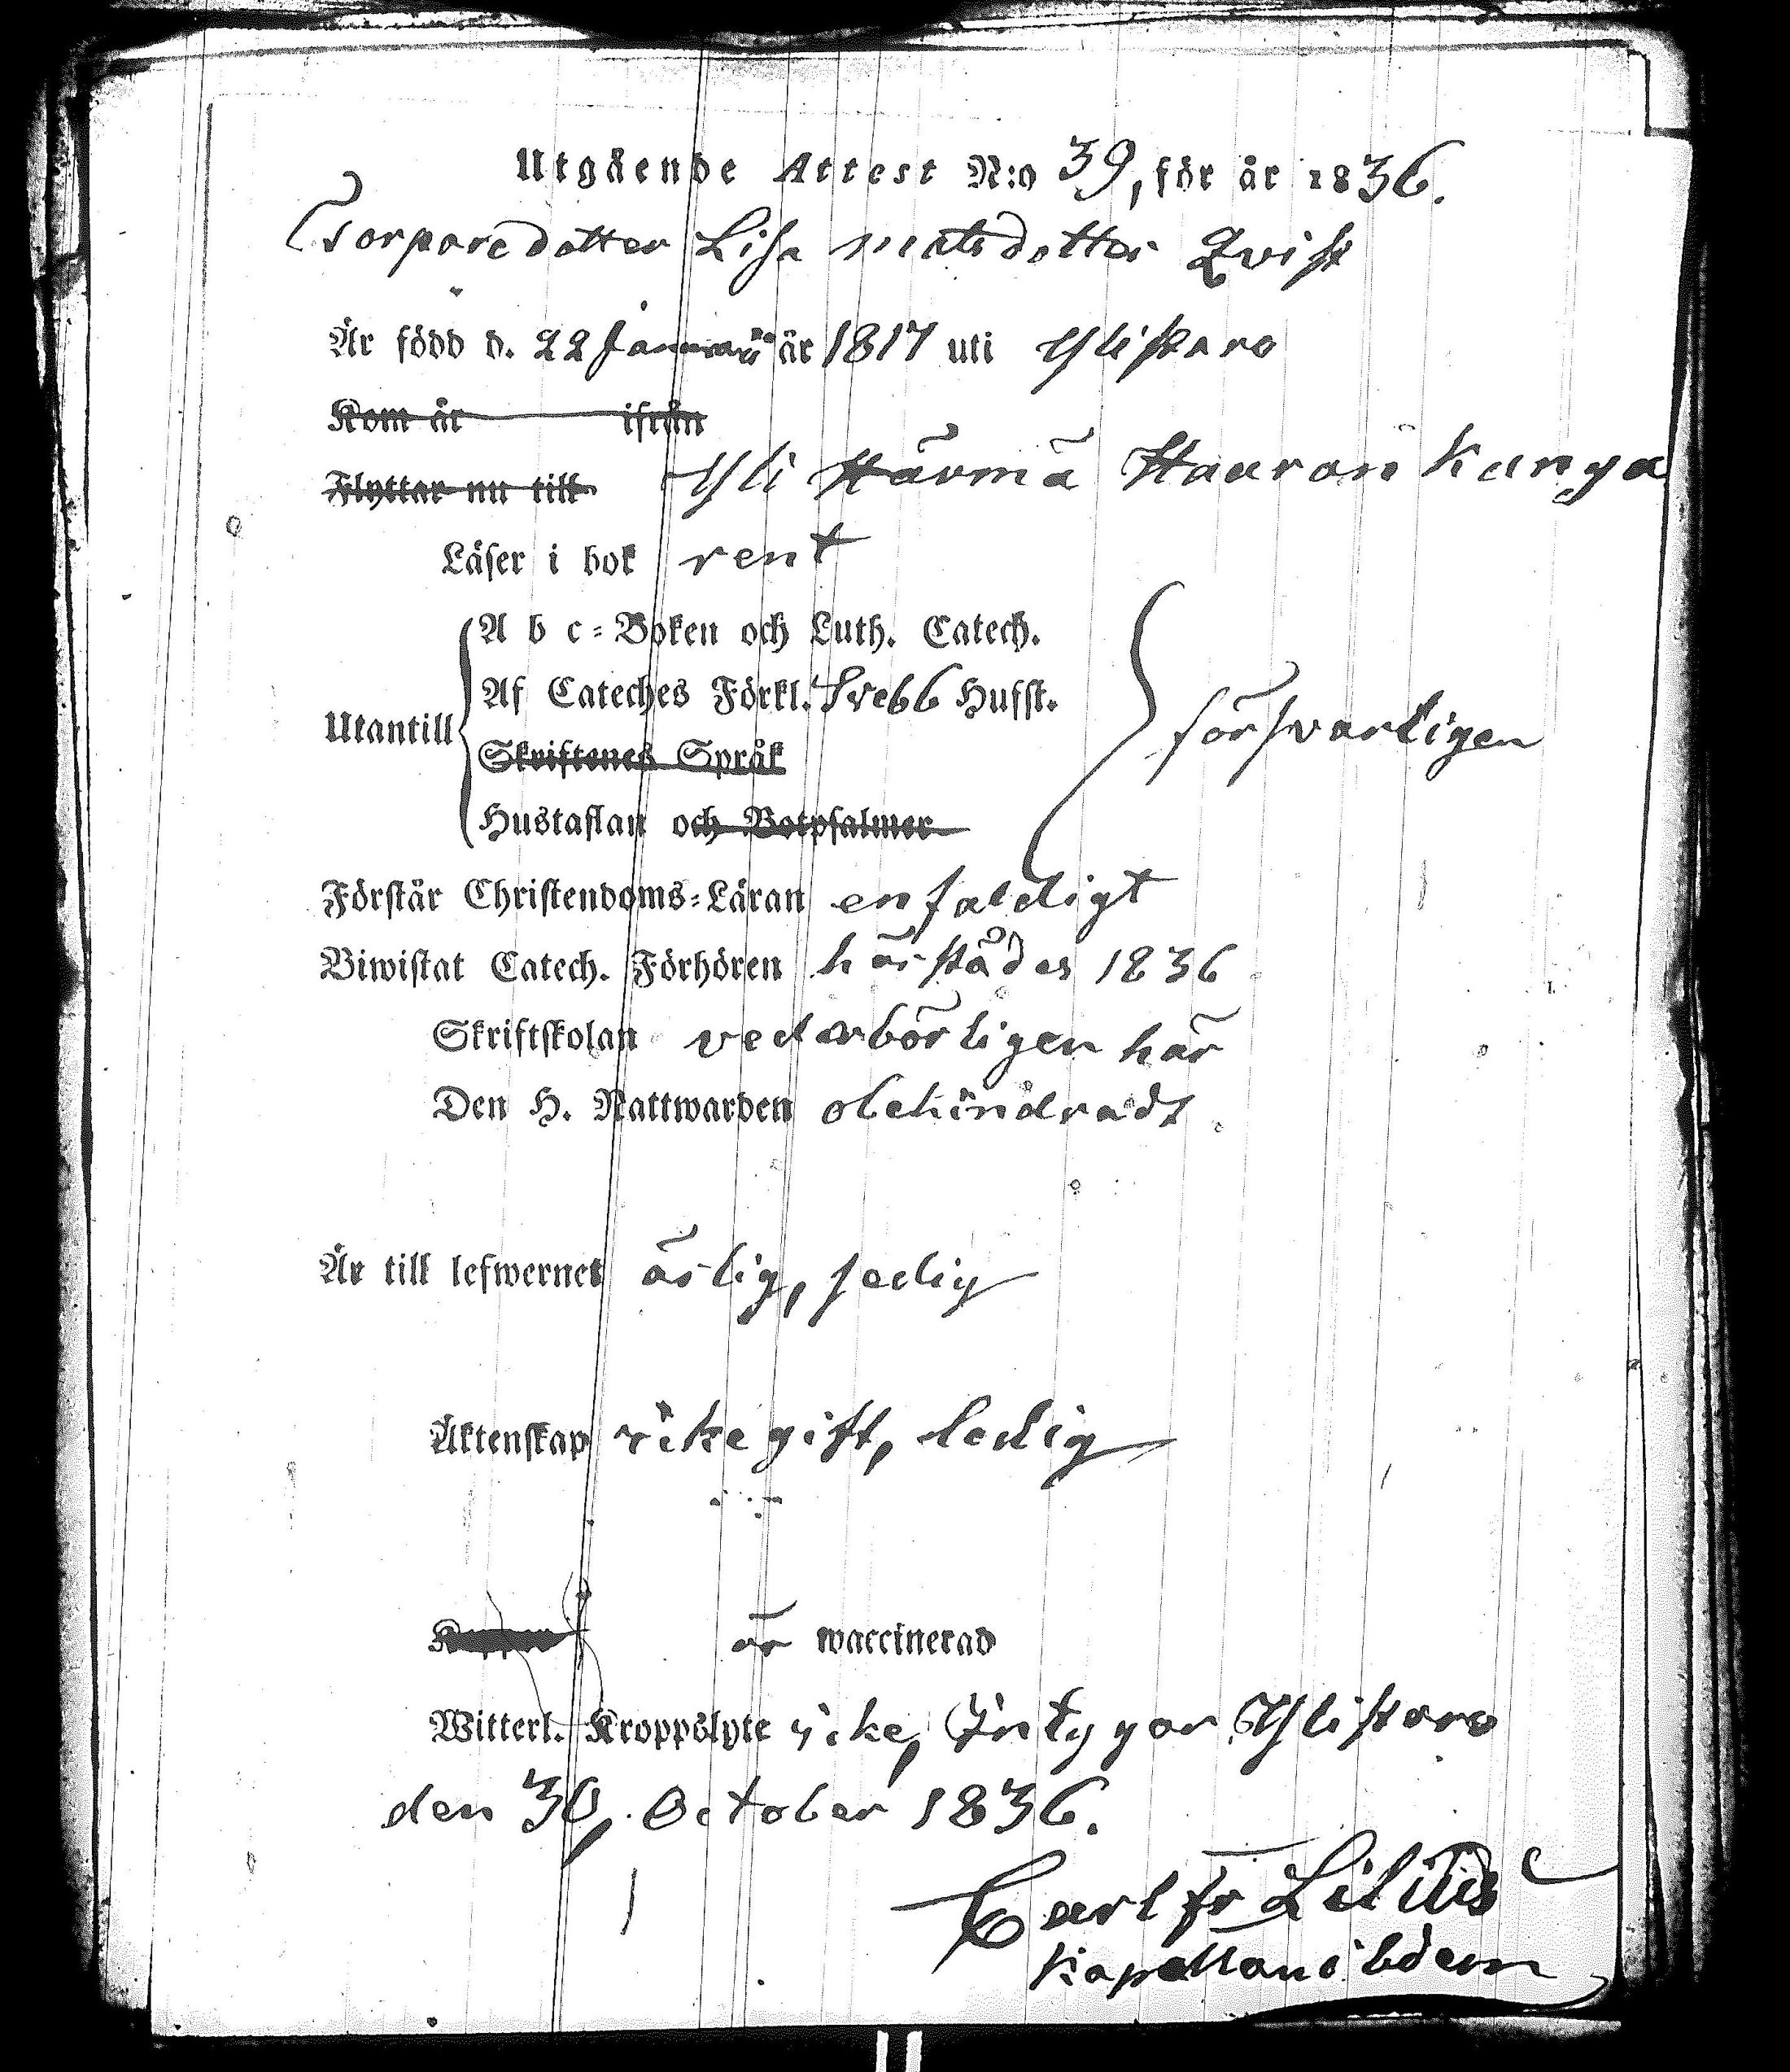 Utgående Attest N:o 39, för år 1836.
Torparedotter Lisa Matsdotter Qvist
Är född d. 22 Januarii år 1817 uti Ylistaro
Kom år ifrån
Flyttar nu till Yli Härmä Haaron Kanga
Läser i bok rent
A b c-Boken och Luth. Catech.
Af Cateches Förkl. Sveb 6 Hufst.
Utantill försvarligen
Skriftenes Språk
Hustaflan och Botpsalmer
Förstår Christendoms-Läran enfaldigt
Biwistat Catech. Förhören härstädes 1836
Skriftskolan vederbörligen här
Den H. Nattwarden obehindradt
Är till lefwernet ärlig, sedig
Äktenskap icke gift, ledig
är waccinerad
Witterl. Kroppslyte icke, Intygar Ylistaro
den 30. October 1836.
Carl Fr Lilius
Kapellan ibdem